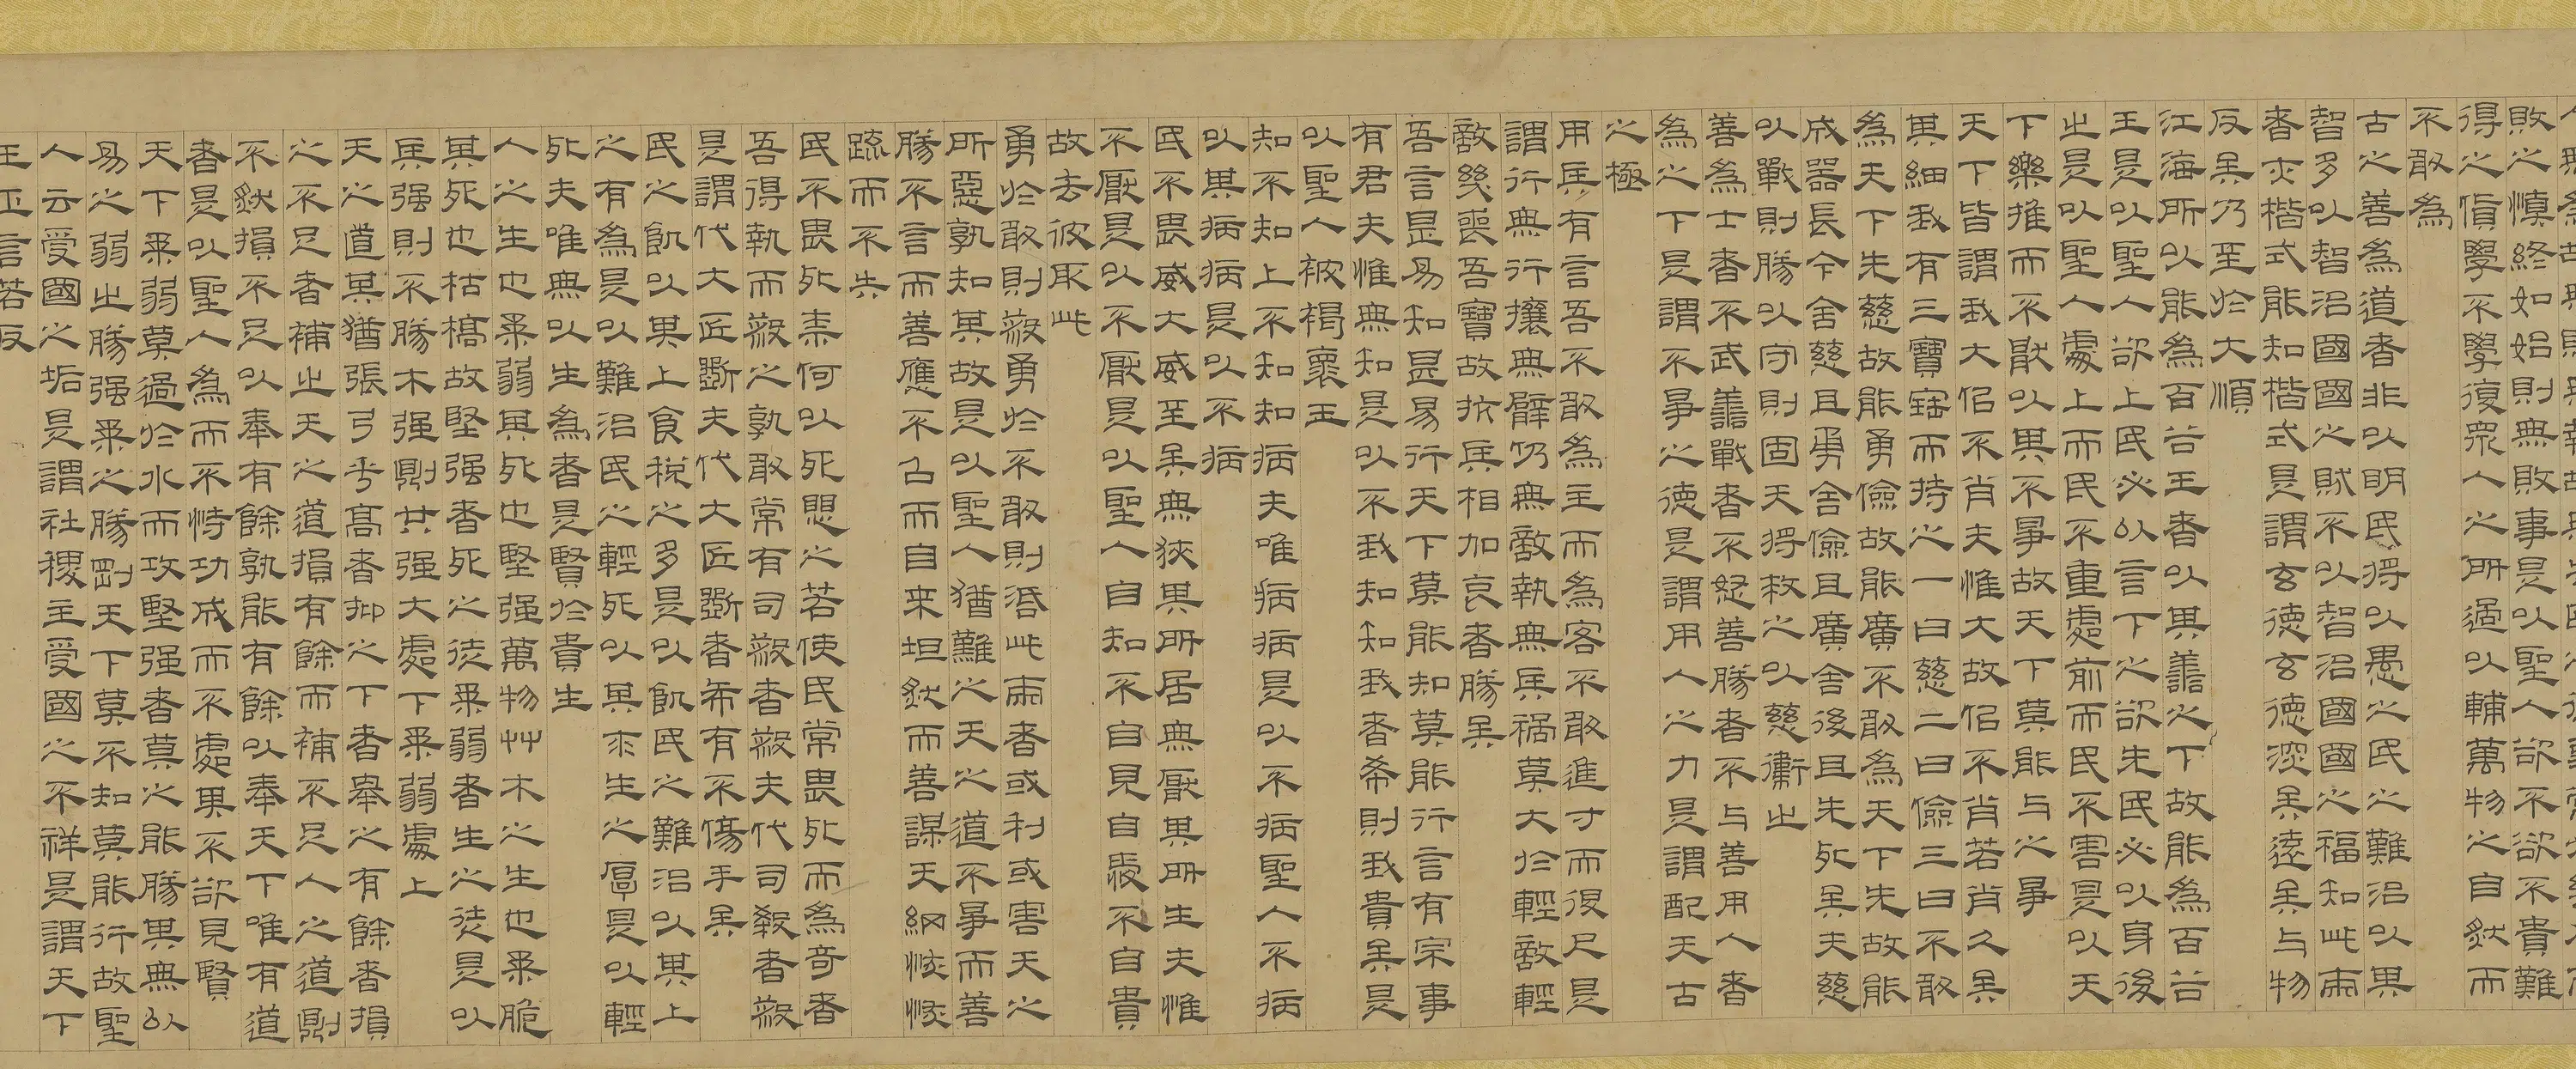 敗之慎終如始則無敗事是以聖人欲不欲不貴難
得之貨學不學復眾人之所過以輔萬物之自然而
不敢為
古之善為道者非以明民將以愚之民之難治以其
智多以智治國國之賊不以智治國國之福知此兩
者亦楷式能知楷式是謂玄德玄德深矣遠矣与物
反矣乃至於大順
江海所以能為百谷王者以其善之下故能為百谷
王是以聖人欲上民必以言下之欲先民必以身後
之是以聖人處上而民不重處前而民不害是以天
下樂推而不厭以其不爭故天下莫能与之爭
天下皆謂我大似不肖夫惟大故似不肖若肖久矣
其細我有三寶寶而持之一曰慈二曰儉三曰不敢
為天下先慈故能勇儉故能廣不敢為天下先故能
成器長今舍慈且勇舍儉且廣舍後且先死矣夫慈
以戰則勝以守則固天將救之以慈衛之
善為士者不武善戰者不怒善勝者不与善用人者
為之下是謂不爭之德是謂用人之力是謂配天古
之極
用兵有言吾不敢為主而為客不敢進寸而退尺是
謂行無行攘無臂仍無敵執無兵禍莫大於輕敵輕
敵幾喪吾寶故抗兵相加哀者勝矣
吾言甚易知甚易行天下莫能知莫能行言有宗事
有君夫惟無知是以不我知知我者希則我貴矣是
以聖人被褐懷玉
知不知上不知知病夫唯病病是以不病聖人不病
以其病病是以不病
民不畏威大威至矣無狹其所居無厭其所生夫惟
不厭是以不厭是以聖人自知不自見自愛不自貴
故去彼取此
勇於敢則殺勇於不敢則活此兩者或利或害天之
所惡孰知其故是以聖人猶難之天之道不爭而善
勝不言而善應不召而自來坦然而善謀天網恢恢
疏而不失
民不畏死柰何以死懼之若使民常畏死而為奇者
吾得執而殺之孰敢常有司殺者殺夫代司殺者殺
是謂代大匠斲夫代大匠斲者希有不傷手矣
民之飢以其上食稅之多是以飢民之難治以其上
之有為是以難治民之輕死以其求生之厚是以輕
死夫唯無以生為者是賢於貴生
人之生也柔弱其死也堅强萬物艸木之生也柔脆
其死也枯槁故堅强者死之徒柔弱者生之徒是以
兵强則不勝木强則共强大處下柔弱處上
天之道其猶張弓乎高者抑之下者舉之有餘者損
之不足者補之天之道損有餘而補不足人之道則
不然損不足以奉有餘孰能有餘以奉天下唯有道
者是以聖人為而不恃功成而不處其不欲見賢
天下柔弱莫過於水而攻堅强者莫之能勝其無以
易之弱之勝强柔之勝剛天下莫不知莫能行故聖
人云受國之垢是謂社稷主受國之不祥是謂天下
王正言若反